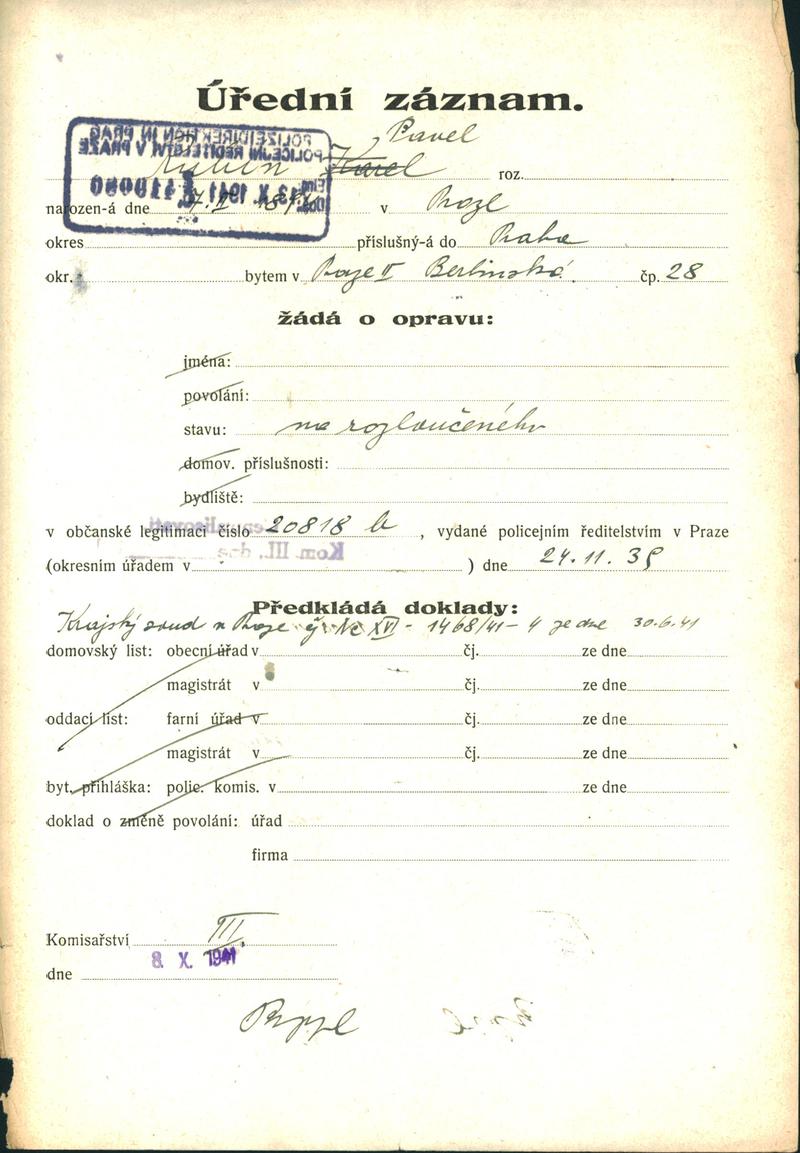 Úřední záznam.
POLIZEIDIREKTION IN PRAG
POLICEJNÍ ŘEDITELSTVÍ V PRAZE
13. X. 1941
Pavel
Karel roz.
narozen-á dne 7. II 18 v Praze
okres příslušný-á do Praha
okr. bytem v Praze II Berlinská čp. 28
žádá o opravu:
jména:
povolání:
stavu: na rozloučeného
domov. příslušnosti:
bydliště:
v občanské legitimaci číslo 20818 b, vydané policejním ředitelstvím v Praze
Kom. III. dne
(okresním úřadem v ) dne 24. 11. 39
Předkládá doklady:
Krajský soud v Praze čj. Nc XVI - 1468/41 - 4 ze dne 30.6.41
domovský list: obecní úřad v čj. ze dne
magistrát v čj. ze dne
oddací list: farní úřad v čj. ze dne
magistrát v čj. ze dne
byt. přihláška: polic. komis. v ze dne
doklad o změně povolání: úřad
firma
Komisařství III.
8. X. 1941
dne